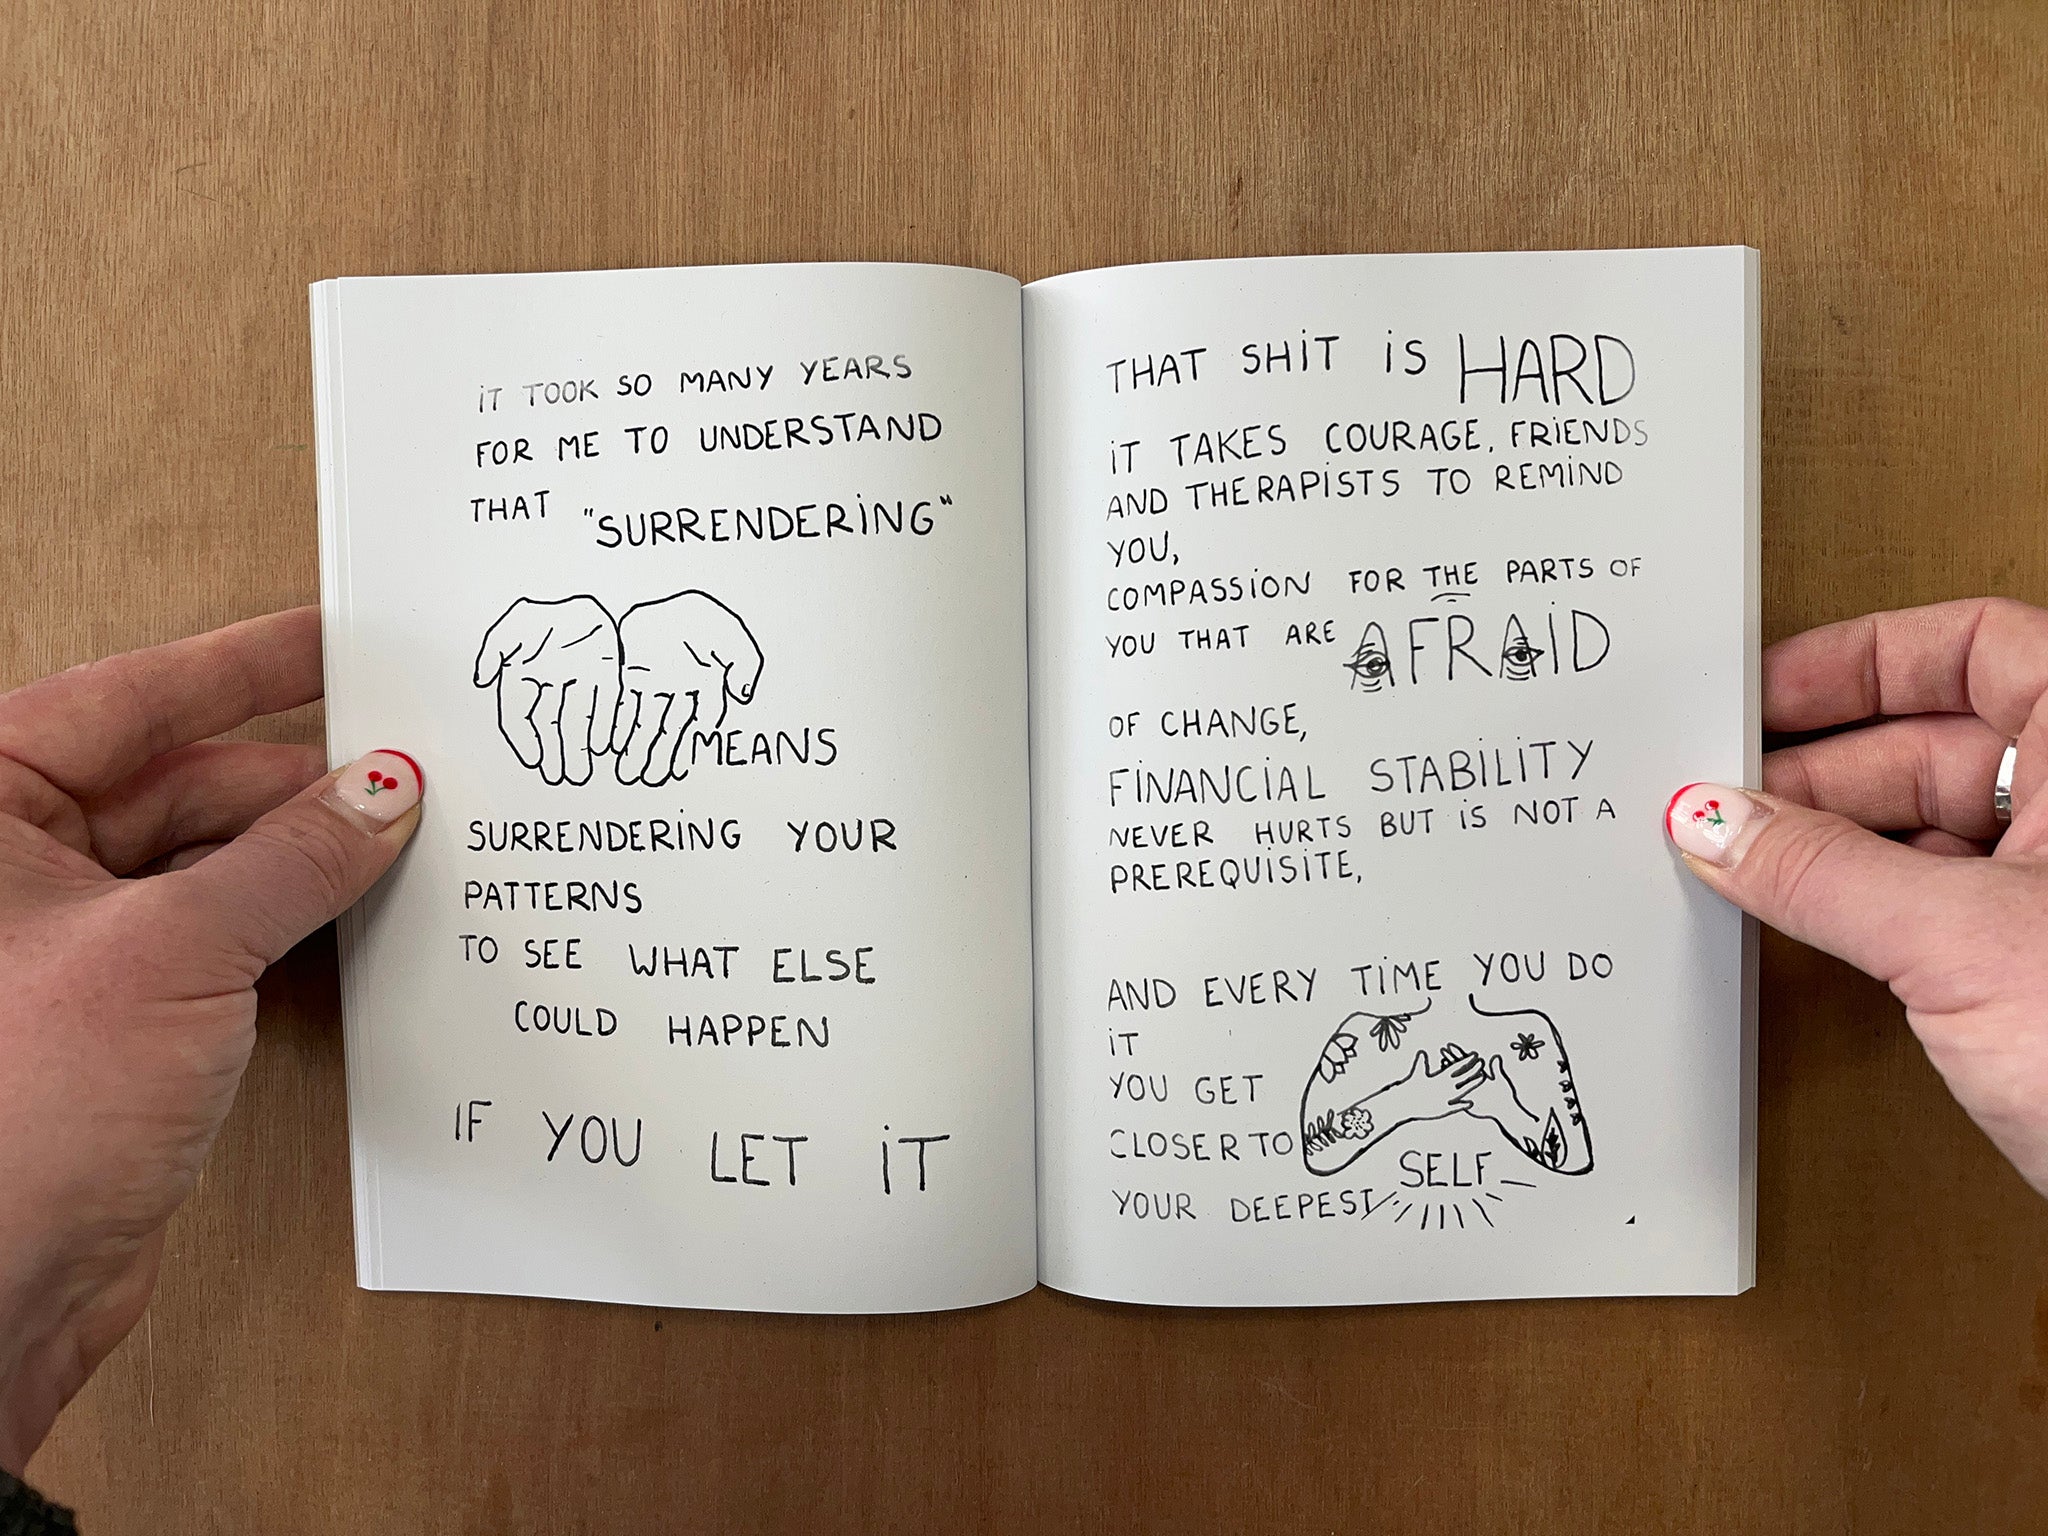 iT TOOK SO MANY YEARS
FOR ME TO UNDERSTAND
THAT "SURRENDERiNG"
MEANS
SURRENDERiNG YOUR
PATTERNS
TO SEE WHAT ELSE
COULD HAPPEN
IF YOU LET iT
THAT SHiT iS HARD
iT TAKES COURAGE, FRiENDS
AND THERAPiSTS TO REMiND
YOU,
COMPASSiON FOR THE PARTS OF
YOU THAT ARE AFRAiD
OF CHANGE,
FiNANCiAL STABiLiTY
NEVER HURTS BUT iS NOT A
PREREQUiSiTE,
AND EVERY TiME YOU DO
iT
YOU GET
CLOSER TO
YOUR DEEPEST SELF